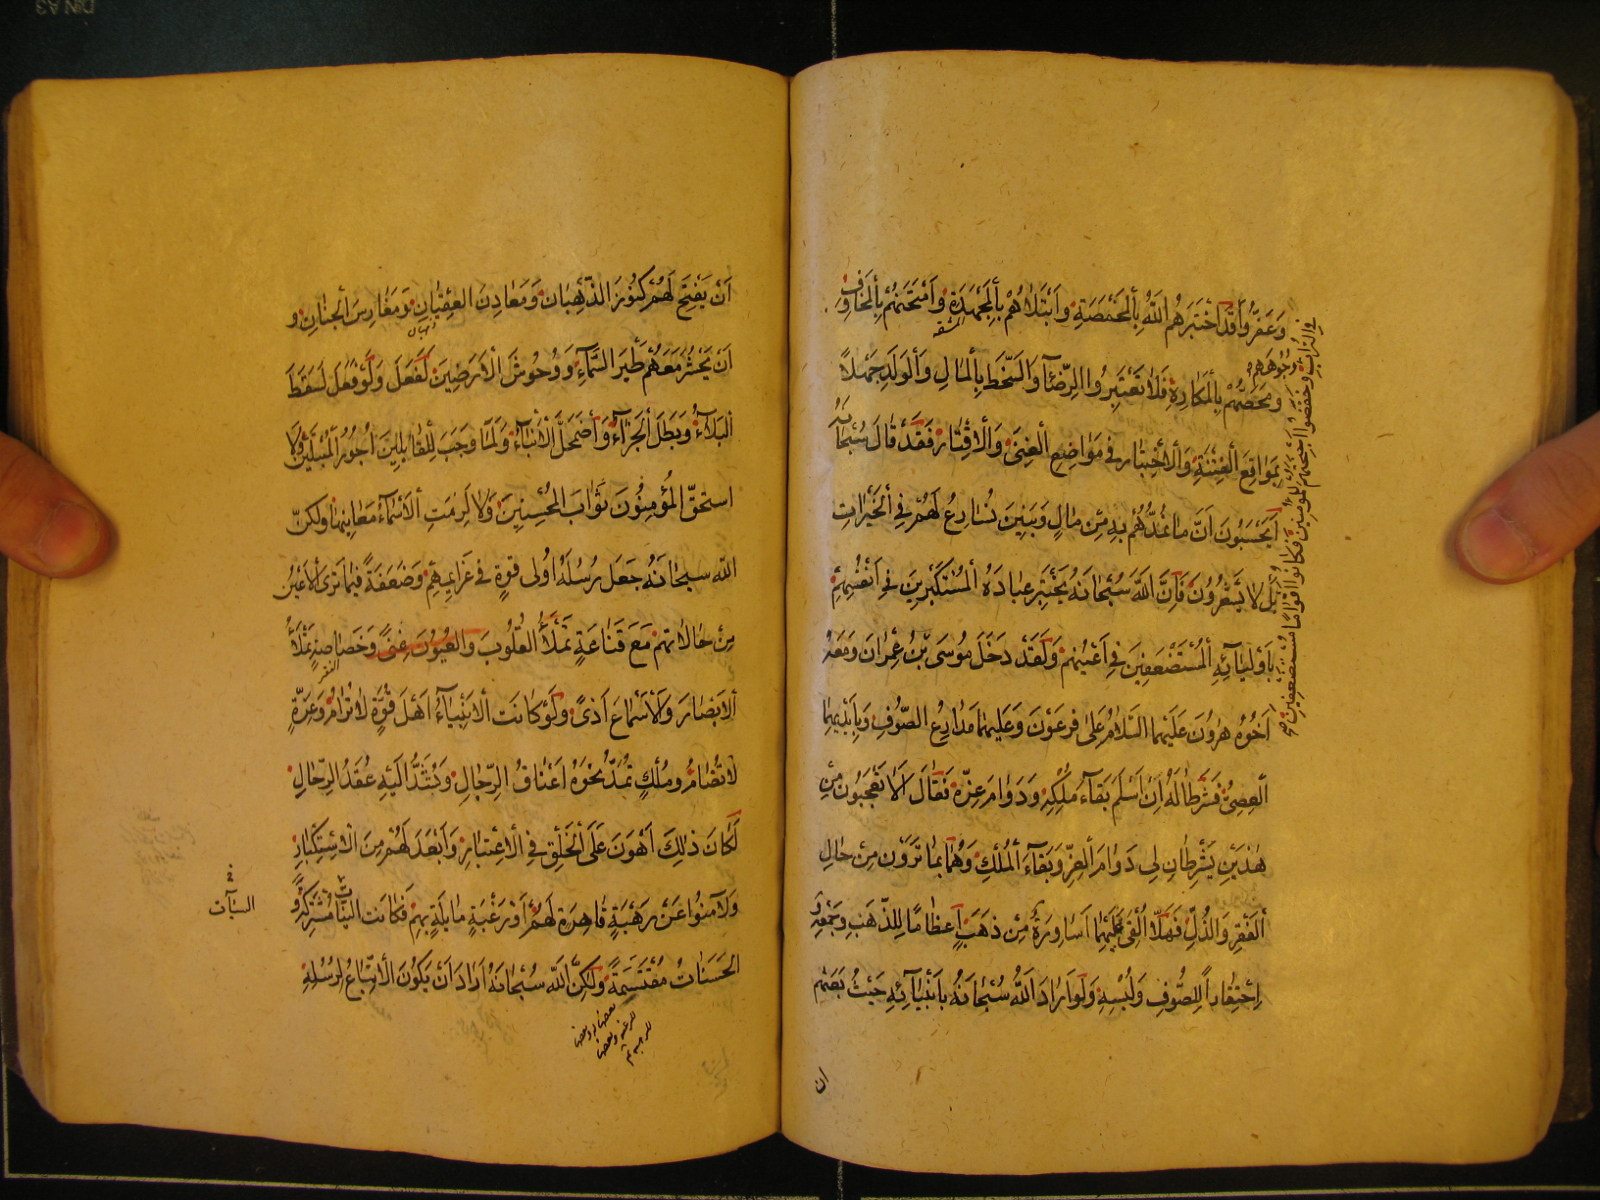 وَعَفَّرُوا قَدِ اخْتَبَرَهُمُ اللّٰهُ بِالْمَخْمَصَةِ وَابْتَلَاهُمْ بِالْمَجْهَدَةِ وَامْتَحَنَهُمْ بِالْمَخَاوِفِ
المشقة
وَمَحَصَهُمْ بِالْمَكَارِهِ فَلَا تَعْتَبِرُوا الرِّضَا وَالسَّخَطَ بِالْمَالِ وَالْوَلَدِ جَهْلًا
بِمَوَاقِعِ الْفِتْنَةِ وَالْاخْتِبَارِ فِي مَوَاضِعِ الْغِنَى وَالْاقْتَارِ فَقَدْ قَالَ سُبْحَانَهُ
اَيَحْسَبُونَ اَنَّ مَا نُمِدُّهُمْ بِهِ مِنْ مَالٍ وَبَنِينَ نُسَارِعُ لَهُمْ فِي الْخَيْرَاتِ
بَلْ لَا يَشْعُرُونَ فَاِنَّ اللّٰهَ سُبْحَانَهُ يَخْتَبِرُ عِبَادَهُ الْمُسْتَكْبِرِينَ فِي اَنْفُسِهِمْ
بِاَوْلِيَائِهِ الْمُسْتَضْعَفِينَ فِي اَعْيُنِهِمْ وَلَقَدْ دَخَلَ مُوسَى بْنُ عِمْرَانَ وَمَعَهُ
اَخُوهُ هٰرُونَ عَلَيْهِمَا السَّلَامُ عَلَى فِرْعَوْنَ وَعَلَيْهِمَا مَدَارِعُ الصُّوفِ وَبِاَيْدِيهِمَا
الْعِصِيُّ فَشَرَطَا لَهُ اِنْ اَسْلَمَ بَقَاءَ مُلْكِهِ وَدَوَامَ عِزِّهِ فَقَالَ اَلَا تَعْجَبُونَ مِنْ
هٰذَيْنِ يَشْرِطَانِ لِي دَوَامَ الْعِزِّ وَبَقَاءَ الْمُلْكِ وَهُمَا بِمَا تَرَوْنَ مِنْ حَالِ
الْفَقْرِ وَالذُّلِّ فَهَلَّا اُلْقِيَ عَلَيْهِمَا اَسَاوِرَةٌ مِنْ ذَهَبٍ اِعْظَامًا لِلذَّهَبِ وَجَمْعِهِ وَ
اِحْتِقَارًا لِلصُّوفِ وَلُبْسِهِ وَلَوْ اَرَادَ اللّٰهُ سُبْحَانَهُ بِاَنْبِيَائِهِ حَيْثُ بَعَثَهُمْ
ان
فِي التُّرَابِ وُجُوهَهُمْ وَخَفَضُوا اَجْنِحَتَهُمْ لِلْمُؤْمِنِينَ فَكَانُوا اَقْوَامًا مُسْتَضْعَفِينَ
اَنْ يَفْتَحَ لَهُمْ كُنُوزَ الذِّهْبَانِ وَمَعَادِنَ الْعِقْيَانِ وَمَغَارِسَ الْجِنَانِ وَ
اَنْ يَحْشُرَ مَعَهُمْ طَيْرَ السَّمَاءِ وَوُحُوشَ الْاَرَضِينَ لَفَعَلَ وَلَوْ فَعَلَ لَسَقَطَ
الْبَلَاءُ وَبَطَلَ الْجَزَاءُ وَاضْمَحَلَّ الْاَنْبَاءُ وَلَمَا وَجَبَ لِلْقَابِلِينَ اُجُورُ الْمُبْتَلَيْنَ وَلَا
اسْتَحَقَّ الْمُؤْمِنُونَ ثَوَابَ الْمُحْسِنِينَ وَلَا لَزِمَتِ الْاَسْمَاءُ مَعَانِيَهَا وَلٰكِنَّ
اللّٰهَ سُبْحَانَهُ جَعَلَ رُسُلَهُ اُولِي قُوَّةٍ فِي عَزَائِمِهِمْ وَضَعَفَةً فِيمَا تَرَى الْاَعْيُنُ
مِنْ حَالَاتِهِمْ مَعَ قَنَاعَةٍ تَمْلَأُ الْقُلُوبَ وَالْعُيُونَ غِنًى وَخَصَاصَةٍ تَمْلَأُ
الفقر
الْاَبْصَارَ وَالْاَسْمَاعَ اَذًى وَلَوْ كَانَتِ الْاَنْبِيَاءُ اَهْلَ قُوَّةٍ لَا تُرَامُ وَعِزَّةٍ
لَا تُضَامُ وَمُلْكٍ تُمَدُّ نَحْوَهُ اَعْنَاقُ الرِّجَالِ وَتُشَدُّ اِلَيْهِ عُقَدُ الرِّحَالِ
لَكَانَ ذٰلِكَ اَهْوَنَ عَلَى الْخَلْقِ فِي الْاِعْتِبَارِ وَاَبْعَدَ لَهُمْ مِنَ الْاِسْتِكْبَارِ
وَلَآمَنُوا عَنْ رَهْبَةٍ قَاهِرَةٍ لَهُمْ اَوْ رَغْبَةٍ مَائِلَةٍ بِهِمْ فَكَانَتِ النِّيَّاتُ مُشْتَرَكَةً وَ
الْحَسَنَاتُ مُقْتَسَمَةً وَلٰكِنَّ اللّٰهَ سُبْحَانَهُ اَرَادَ اَنْ يَكُونَ الْاِتِّبَاعُ لِرُسُلِهِ